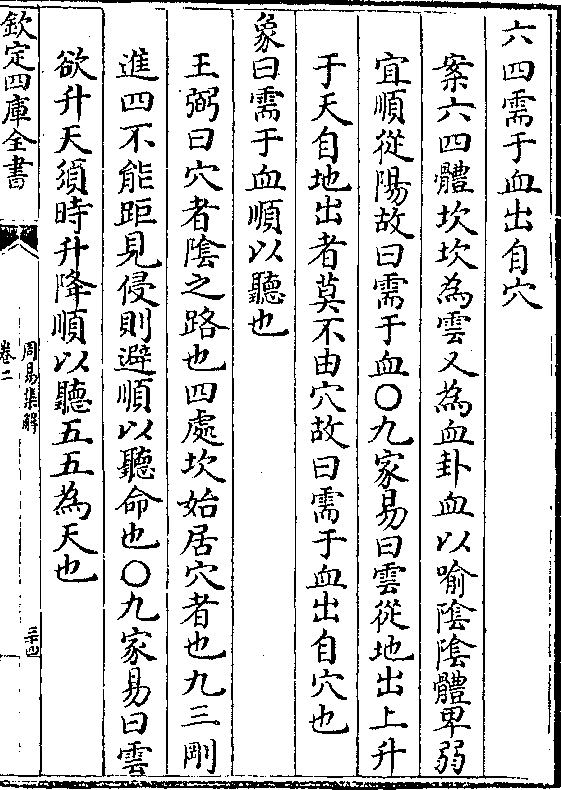 六四需于血出自穴
案六四體坎坎為雲又為血卦血以喻隂隂體卑弱
宜順從陽故曰需于血○九家易曰雲從地出上升
于天自地出者莫不由穴故曰需于血出自穴也
象曰需于血順以聽也
王弼曰穴者隂之路也四處坎始居穴者也九三剛
進四不能距見侵則避順以聽命也○九家易曰雲
欲升天須時升降順以聽五五為天也
欽定四庫全書
周易集解
卷二
二十四